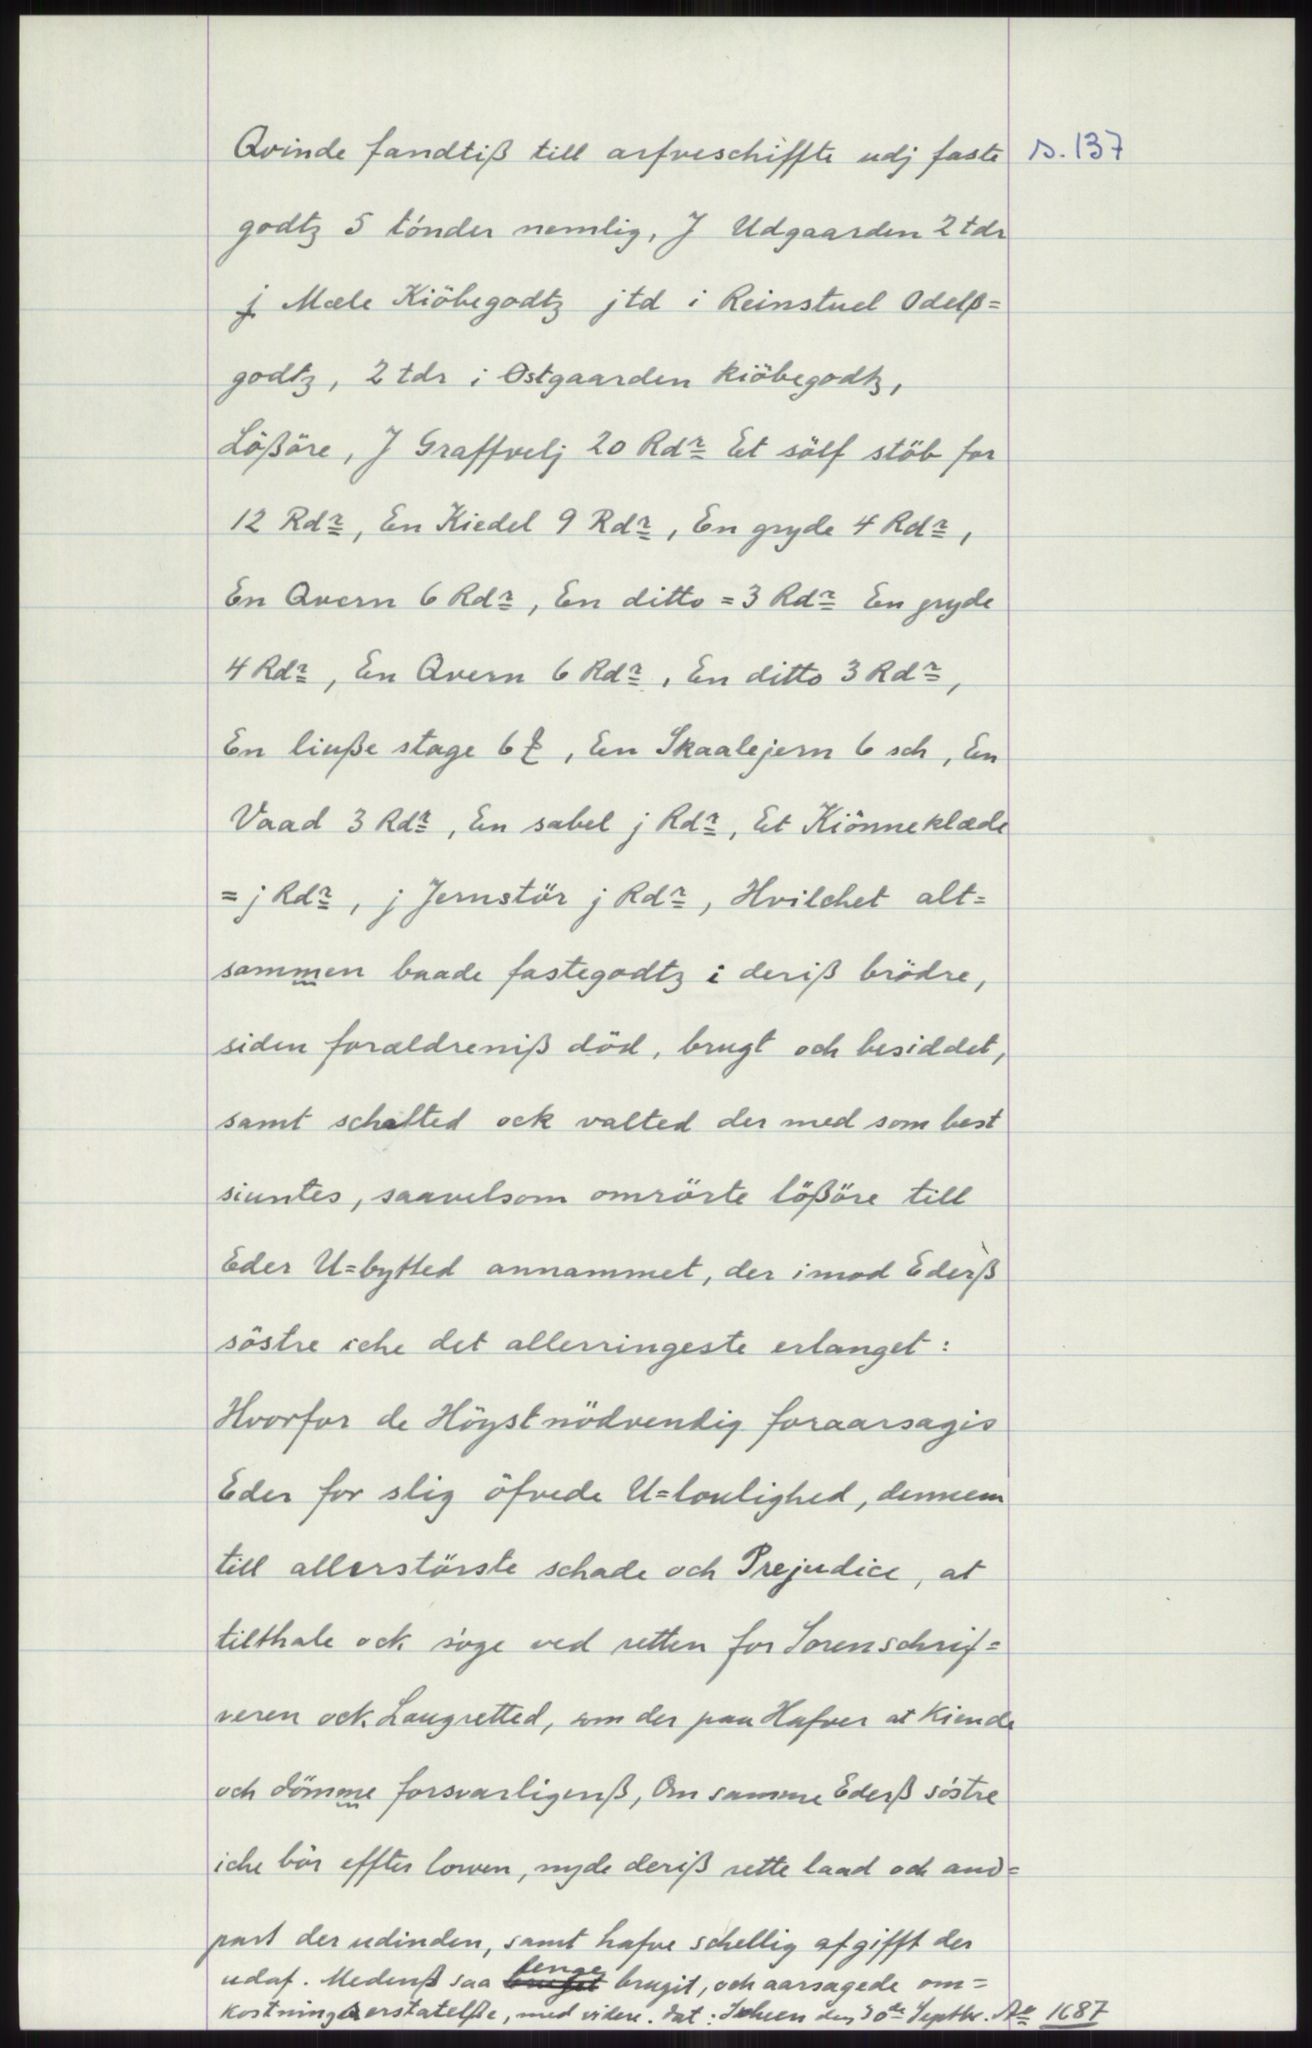 Qvinde fandtiß till arfveschiffte udj faste s. 137
godtz 5 tönder nemlig, J Udgaarden 2 tdr
j Mæle Kiöbegodtz j td i Reinstuel Odelß=
godtz, 2 tdr i Østgaarden kiöbegodtz,
Lößöre, J Graffvelj 20 Rdr Et sölf stöb for
12 Rdr, En Kiedel 9 Rdr, En gryde 4 Rdr,
En Qvern 6 Rdr, En ditto = 3 Rdr En gryde
4 Rdr, En Qvern 6 Rdr, En ditto 3 Rdr,
En liuße stage 6, En Skaalejern 6 sch, En
Vaad 3 Rdr, En sabel j Rdr, Et Kiönneklæde
= j Rdr, j Jernstör j Rdr, Hvilchet alt=
sammen baade fastegodtz i deriß brödre,
siden forældreniß död, brugt och besiddet,
samt schalted ock valted der med som best
siuntes, saavelsom omrörte lößöre till
Eder U=bytted annammet, der imod Ederß
söstre iche det allerringeste erlanget:
Hvorfor de Höyst nödvendig foraarsagis
Eder for slig öfvede U=loulighed, dennem
till allerstörste schade och Prejudice, at
tilthale ock söge ved retten for Sorenschrif=
veren ock Laugretted, som der paa Hafver at Kiende
och dömme forsvarligenß, Om samme Ederß söstre
iche bör effter lowen, nyde deriß rette laad och and=
part der udinden, samt hafve schellig afgifft der
udaf. Medenß saa lenge brugit, och aarsagede om=
kostninger erstatelße, med videre. Dat: Scheen den 30de Septbr. Ao 1687